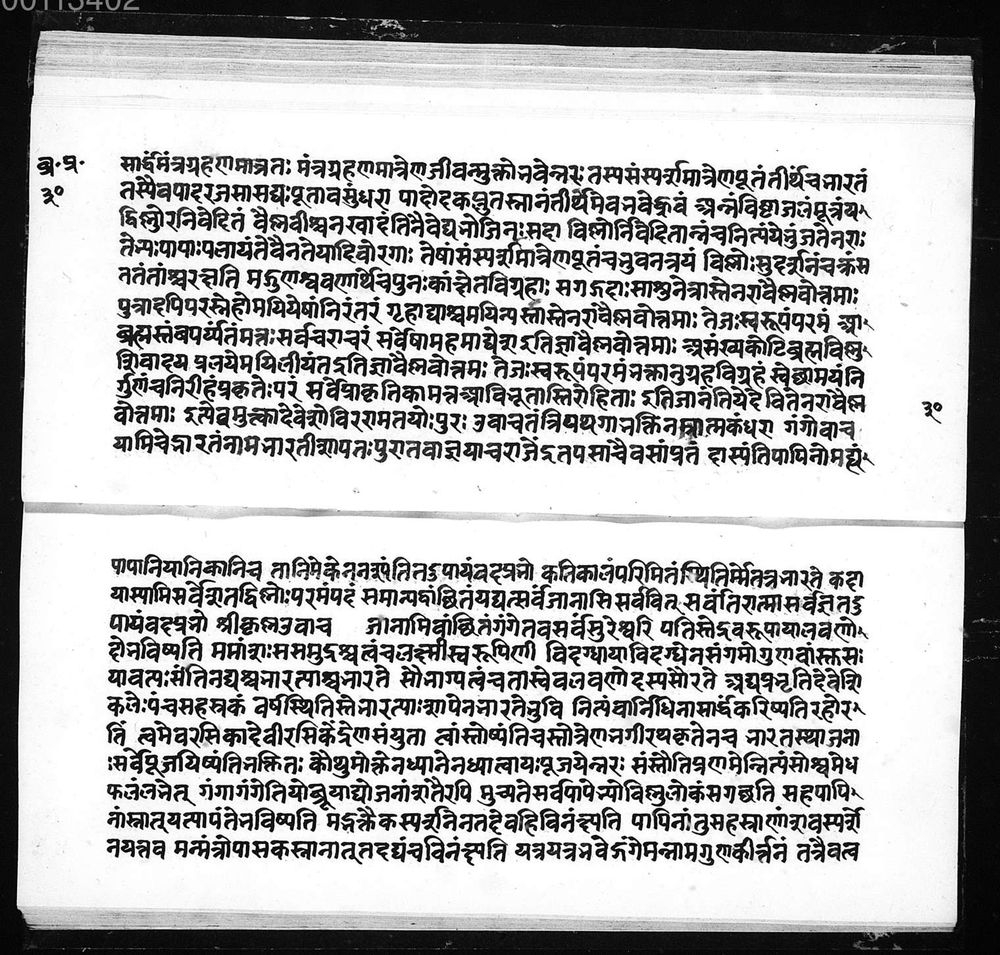 00113402
ब्र.प्र.
३०
सार्द्धमंत्रग्रहणमात्रतः मंत्रग्रहणमात्रेणजीवन्मुक्तोभवेन्नरः तस्यसंस्पर्शमात्रेणपूतंतीर्थंचभारतं
तस्यैवपादरजसासद्यःपूतावसुंधरा पादोदकप्लुतस्नानंतीर्थमेवभवेद्ध्रुवं अन्नंविष्टाजलंमूत्रंय
द्विष्णोरनिवेदितं वैष्णवाश्चनखादंतिनैवेद्यभोजिनःसदा विष्णोर्निवेदितान्नंचनित्यंयेभुंजतेनराः
तेभ्यःपापाःपलायंतेवैनतेयादिवोरगाः तेषांसंस्पर्शमात्रेणपूतंचभुवनत्रयं विष्णोःसुदर्शनंचक्रंस
ततंतांश्चरक्षति मद्गुणश्रवणार्थंचपुनःकांक्षेतविग्रहाः सगद्गदाःसाश्रुनेत्रास्तेनरावैष्णवोत्तमाः
पुत्रादपिपरस्नेहोमयियेषांनिरंतरं गृहाद्याश्चमयिन्यस्तास्तेनरावैष्णवोत्तमाः तेजःस्वरूपंपरमं आ
ब्रह्मस्तंबपर्य्यंतंमत्तःसर्वंचराचरं सर्वेषामहमाद्येशइतिज्ञावैष्णवोत्तमाः असंख्यकोटिब्रह्मविष्णु
शिवादय प्रलयेमयिलीयंतइतिज्ञावैष्णवोत्तमः तेजःस्वरूपंपरमंभक्तानुग्रहविग्रहं स्वेछामयंनि
र्गुणंचनिरीहंप्रकृतेःपरं सर्वेप्राकृतिकामत्तआविर्भूतास्तिरोहिताः इतिजानंतियेदेवितेनरावैष्ण
वोत्तमाः इत्येवमुत्क्कादेवेशोविररामतयोःपुरः उवाचतंत्रिपथगाभक्तिनम्रात्मकंधरा गंगोवाच
३०
यामिचेद्भारतंनाथभारतीशापतःपुरातवाज्ञयाचराजेंद्रतपसाचैवसांप्रतं दास्यंतिपापिनोमह्यं
पापानियानिकानिच तानिमेकेननश्यंतितदुपायंवदप्रभो कतिकालंपरिमितंस्थितिर्मेतत्रभारते कदा
यास्यामिसर्वेशतद्विष्णोःपरमंपदं ममान्यद्वांछितंयद्यत्सर्वंजानासिसर्ववित् सर्वांतरात्मासर्वज्ञतदु
पायंवदप्रभो श्रीकृष्णउवाच जानामिवांछितंगंगेतवसर्वंसुरेश्वरि पतिस्तेद्रवरूपायालवणो
दोभविष्यति ममांशःससमुद्रश्चत्वंचलक्ष्मीस्वरूपिणी विदग्धायाविदग्धेनसंगमोगुणवान्स्क्तसः
यावत्यःसंतिनद्यश्चभारत्याश्चभारते सौभाग्यत्वंचतास्वेवलवणोदस्यसौरते अद्यप्रभृतिदेवेशि
कलेःपंचसहस्रकं वर्षंस्थितिस्तेभारत्याःशापेनभारतेभुवि नित्यंवारिधिनासार्द्धंकरिष्यतिरहोर
तिं त्वमेवरसिकादेवीरसिकेंद्रेणसंयुता त्वांस्तोष्यंतिचस्तोत्रेणभगीरथकृतेनच भारतस्थाजना
ःसर्वेपूजयिष्यंतिभक्तितः कौथुमोक्तेनध्यानेनध्यात्वायःपूजयेन्नरः संस्तौतिप्रणमेन्नित्यंसोश्वमेध
फलंलभेत् गंगागंगेतियोब्रूयाद्योजनानांशतैरपि मुच्यतेसर्वपापेभ्योविष्णुलोकंसगछति सहपापि
नांस्नात्तुयत्पापंतेभविष्यति मद्भक्तैकस्पर्शनेनतदेवहिविनंक्ष्यति पापिनांतुसहस्राणांशवस्पर्शे
नयत्तव मन्मंत्रोपासकस्नानात्तुतदद्यंचविनंक्ष्यति यत्रयत्रभवेद्गंगेमन्नामगुणकीर्त्तनं तत्रैवत्व